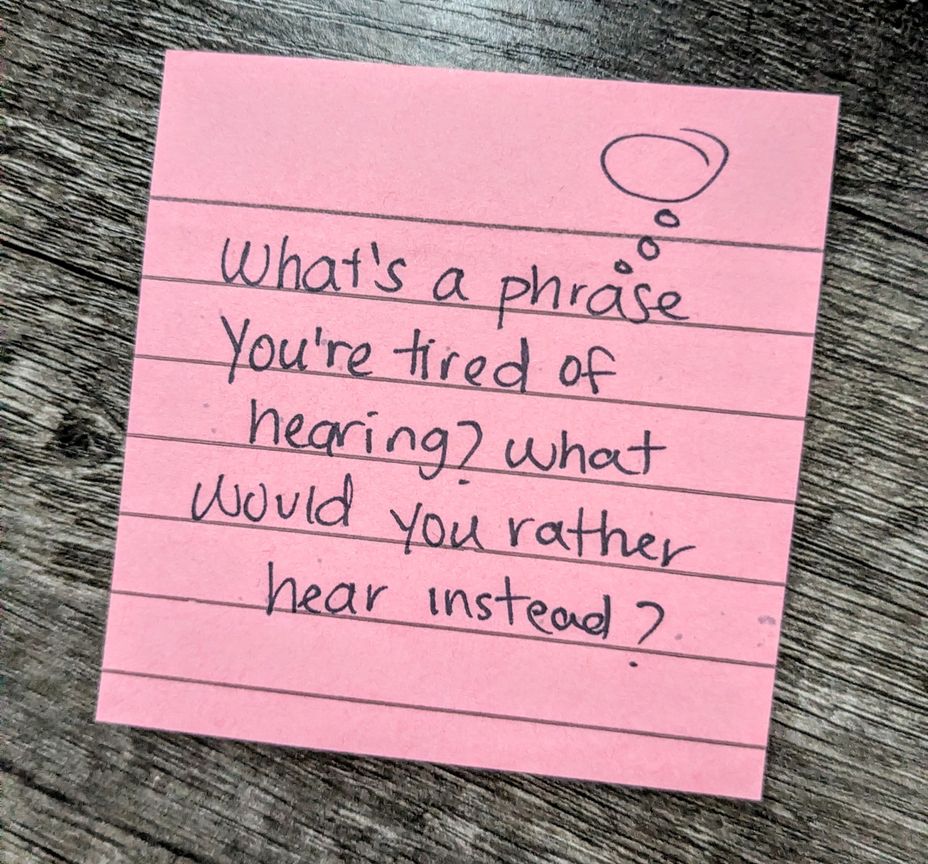 What's a phrase
You're tired of
hearing? what
would you rather
hear instead?